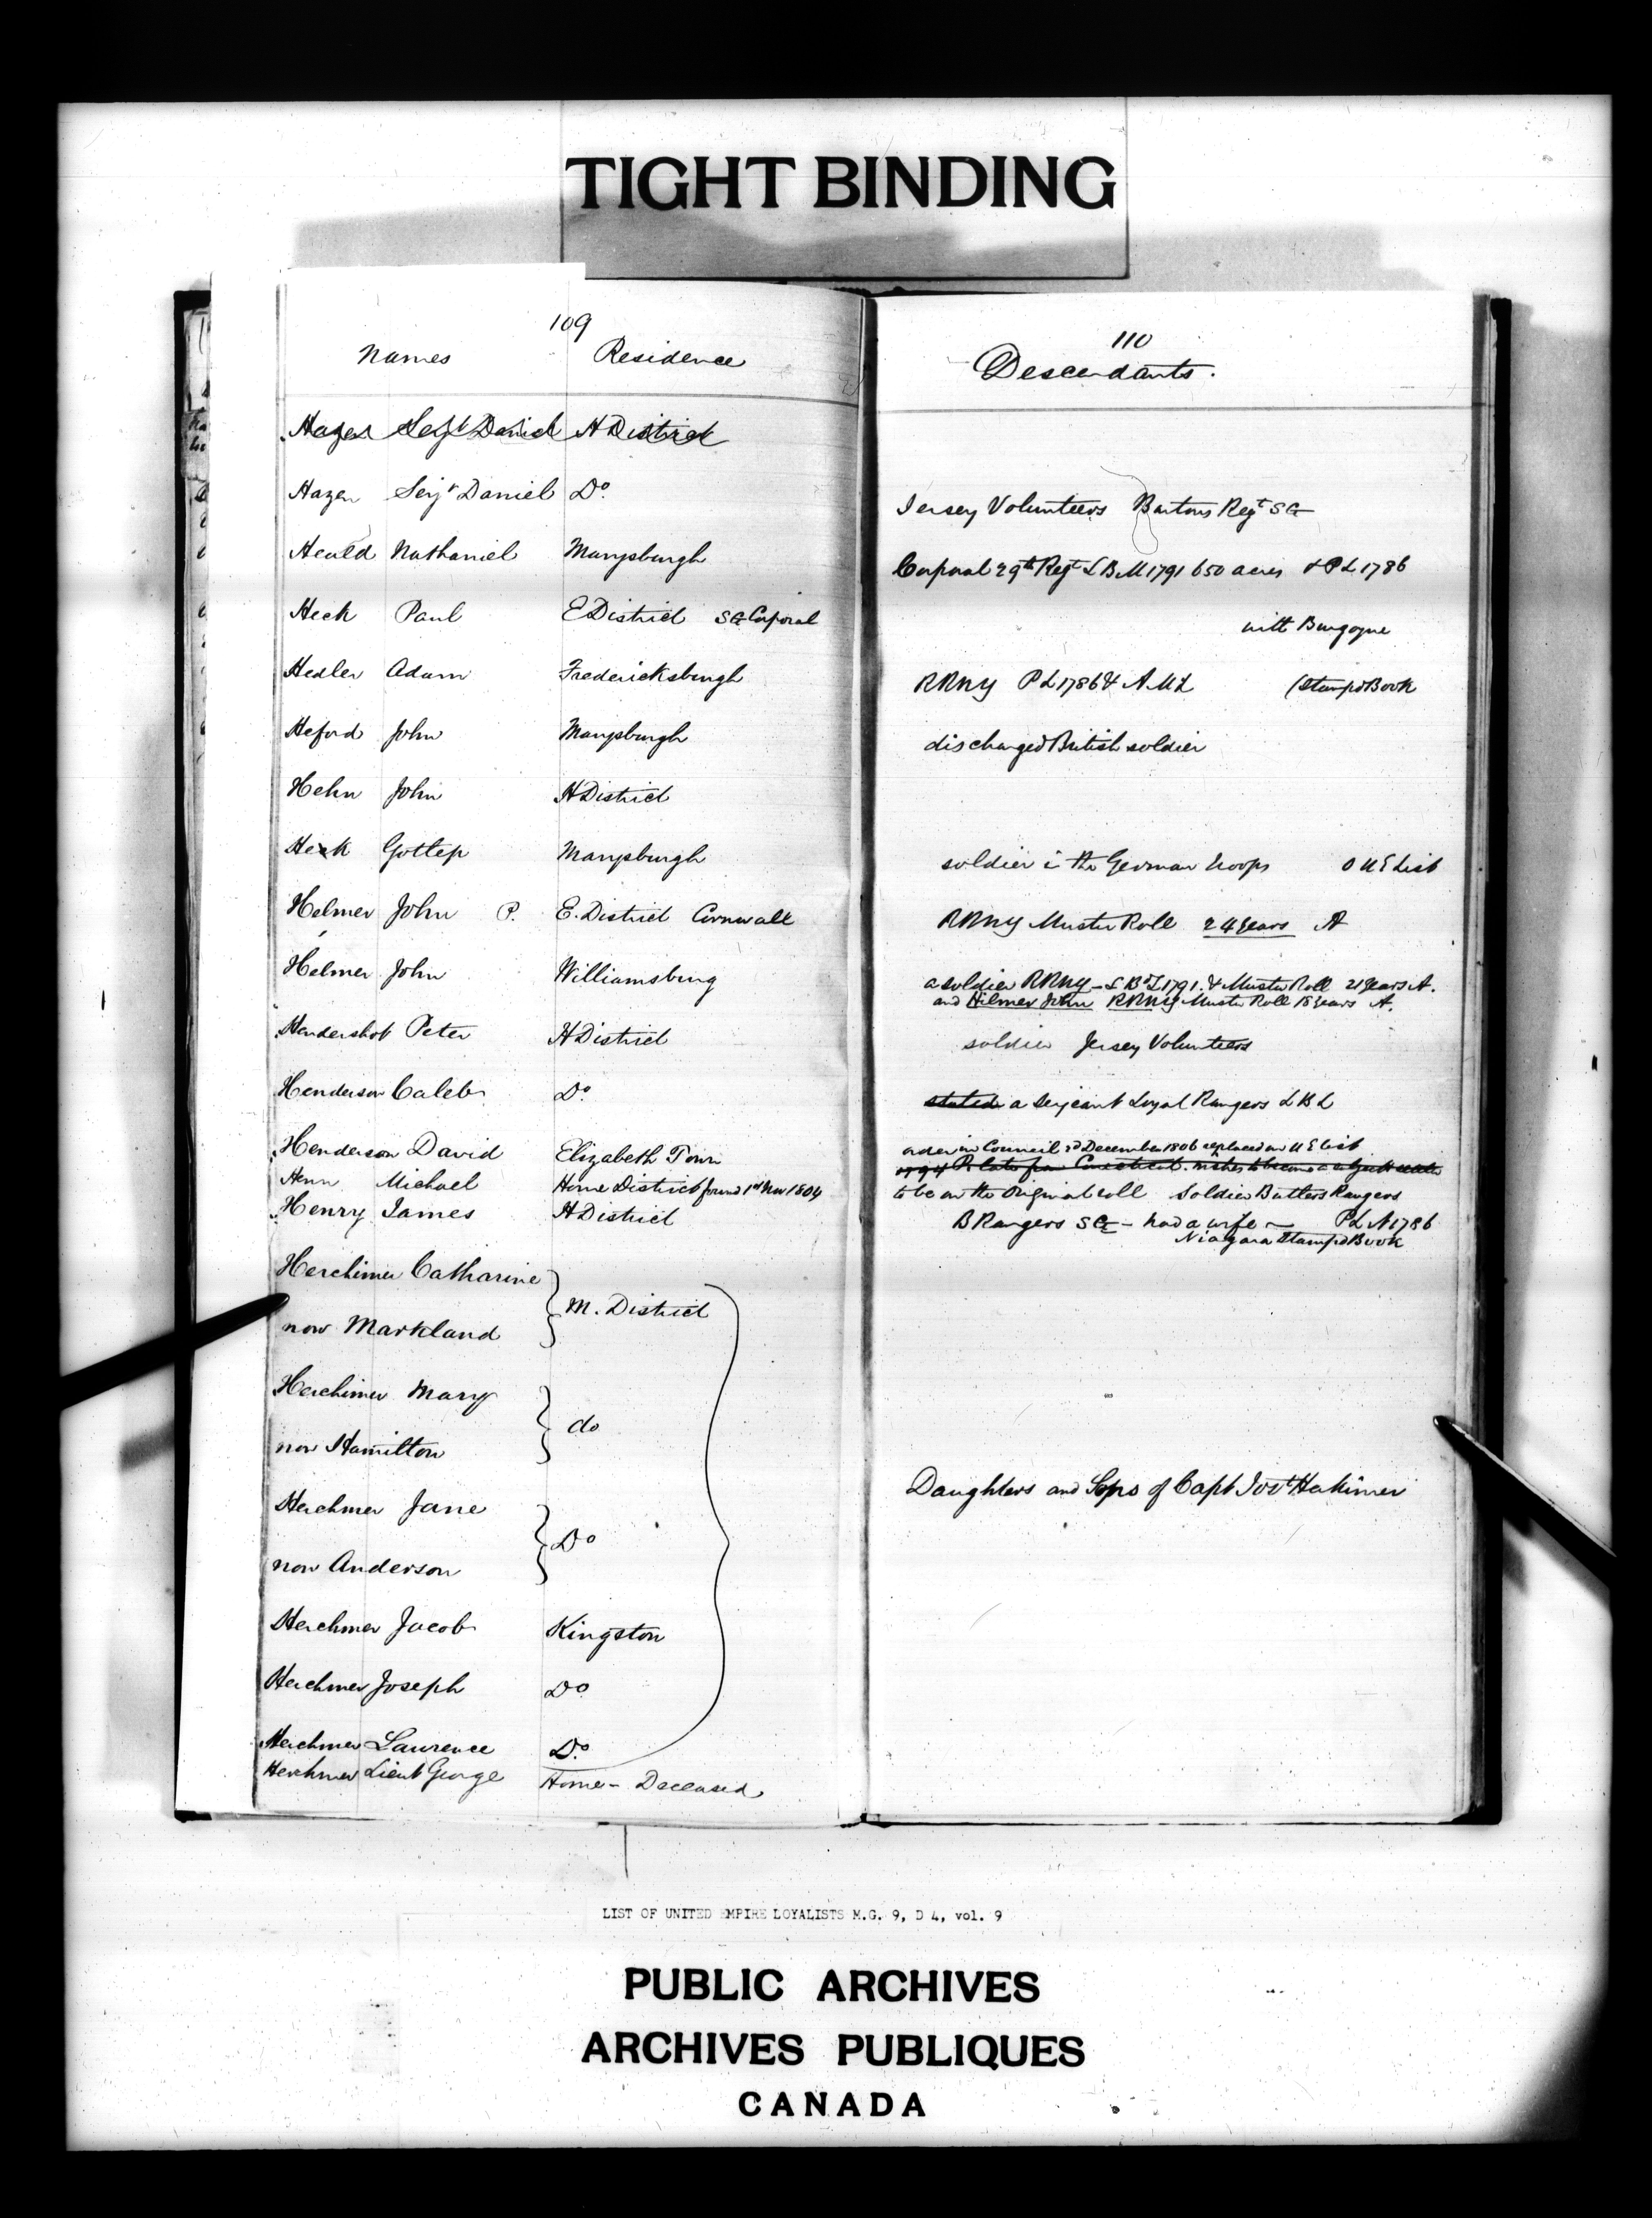 TIGHT BINDING
109
Names Residence
Hazen Serjt Daniel H District
Hazen Serjt Daniel Do.
Heald Nathaniel Marysburgh
Heck Paul E District SG Corporal
Hedler Adam Fredericksburgh
Heford John Marysburgh
Hehn John H District
Heck Gottep Marysburgh
Helmer John P. E. District Cornwall
Helmer John Williamsburg
Hendershot Peter H District
Henderson Caleb Do.
Henderson David Elizabeth Town
Henn Michael Home District found 1st Nov 1804
Henry James H District
Herchimer Catharine
M. District
now Markland
Herchimer Mary
do
now Hamilton
Herchmer Jane
Do
now Anderson
Herchmer Jacob Kingston
Herchmer Joseph Do
Herchmer Laurence Do.
Herchmer Lieut George Home - Deceased
110
Descendants.
Jersey Volunteers Bartons Regt SG
Corporal 29th Regt L B M 1791 650 acres & P L 1786
with Burgoyne
RRNY P L 1786 & A M L (Stamp'd Book
discharged British soldier
soldier in the German troops O U E List
RRNY Muster Roll 24 years A
a soldier RRNY - L Bd L 1791. & Muster Roll 21 years A.
and Hilmer John RRNY Muster Roll 18 years A.
soldier Jersey Volunteers
stated a serjeant Loyal Rangers L B L
order in Council 2d December 1806 replaced on U E list
1794 P. Late from Conecticut. wishes to become a subject
to be on the Original roll Soldier Butlers Rangers
B Rangers SG - had a wife - P L N 1786
Niagara Stamp'd Book
Daughters and Sons of Capt Jost Hakimer
LIST OF UNITED EMPIRE LOYALISTS M.G. 9, D 4, vol. 9
PUBLIC ARCHIVES
ARCHIVES PUBLIQUES
CANADA